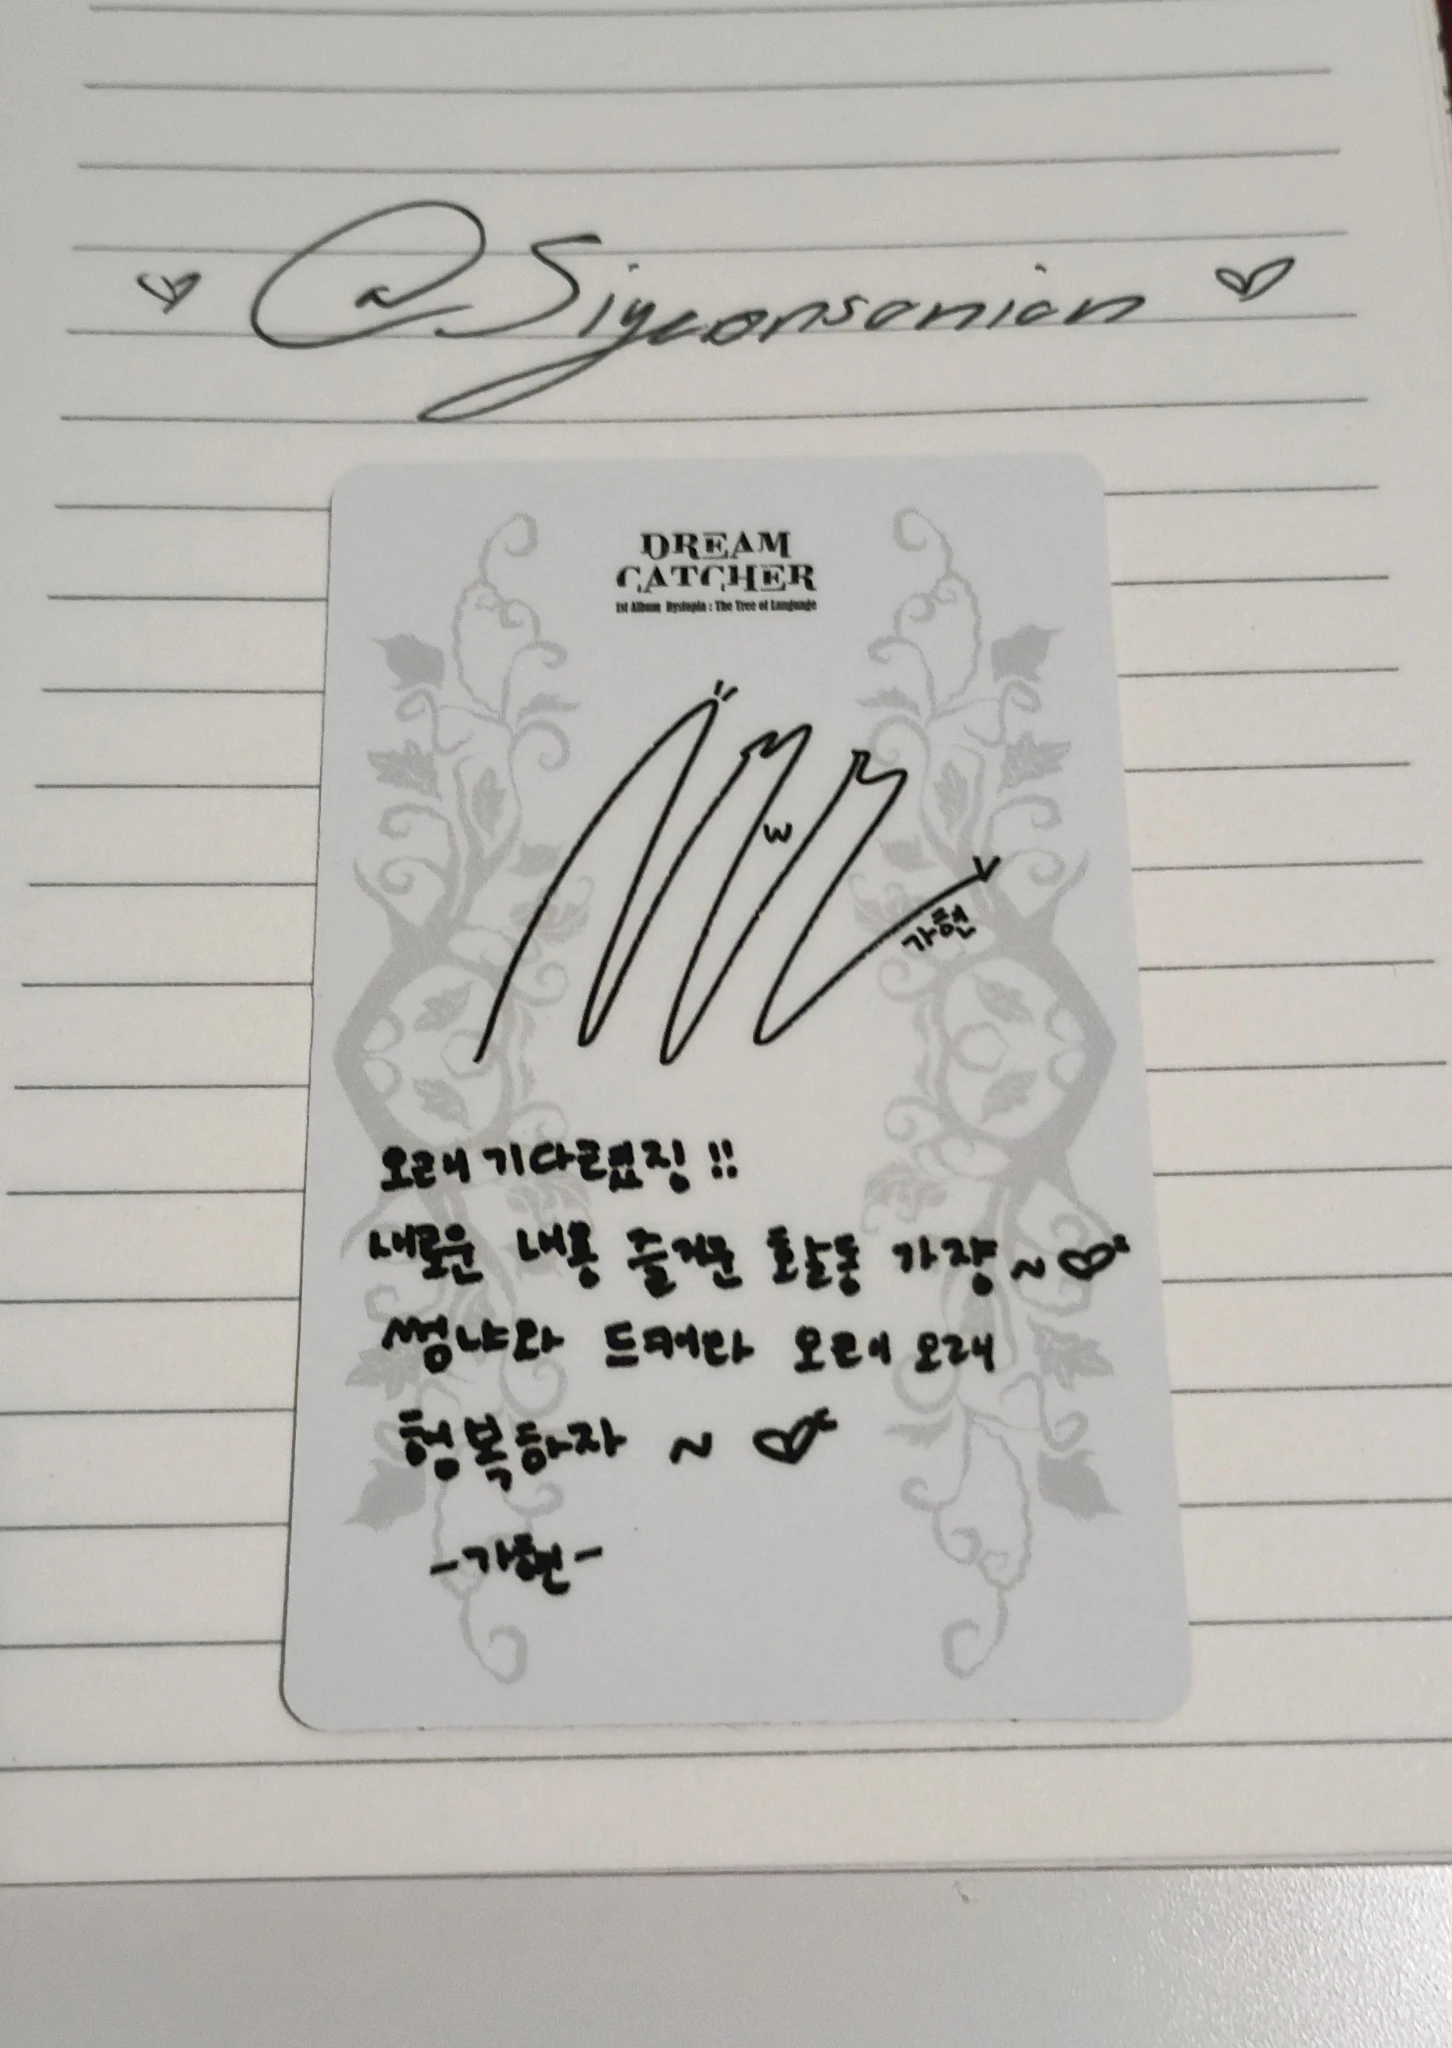 @Siyeonsanian
DREAM
CATCHER
1st Album Dystopia : The Tree of Language
가현
오래 기다렸징 !!
새로운 내용 즐거운 활동 가쟝~♡
썸냐와 드캐라 오래오래
행복하자 ~ ♡
-가현-